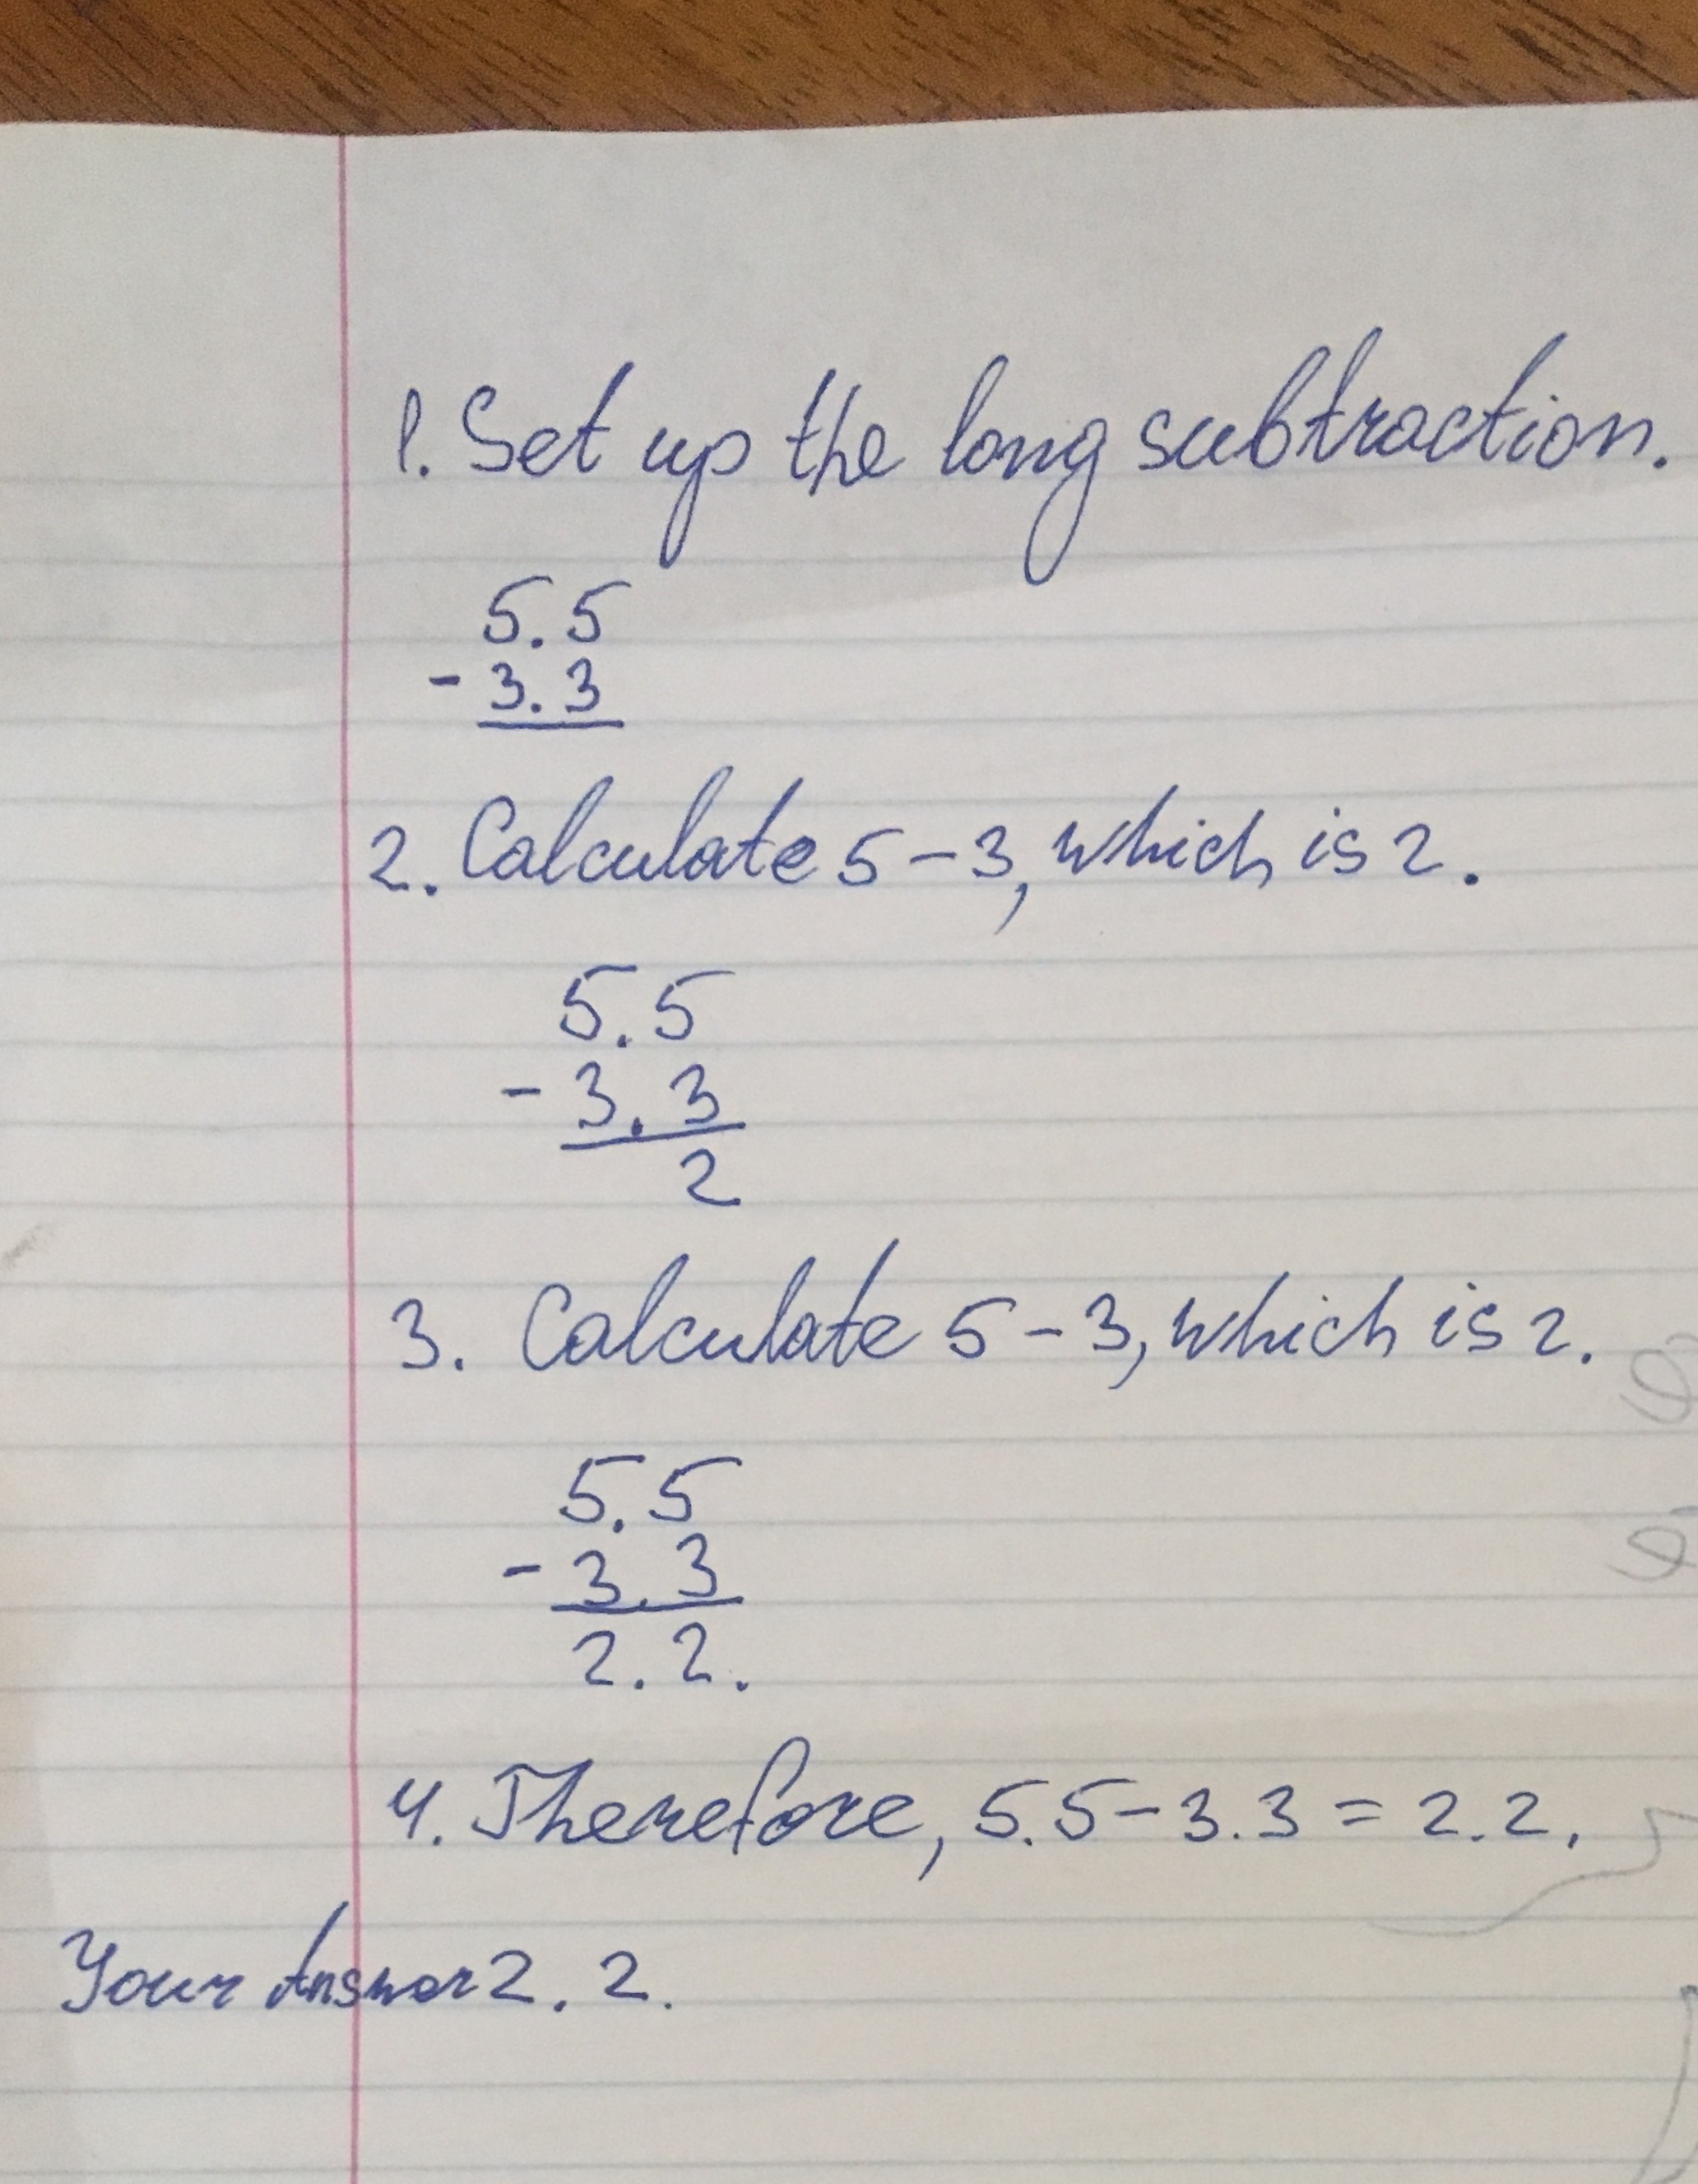 1. Set up the long subtraction.
5.5
- 3.3
2. Calculate 5-3, which is 2.
5.5
- 3.3
2
3. Calculate 5-3, which is 2.
5.5
- 3.3
2.2.
4. Therefore, 5.5-3.3=2.2.
Your Answer 2.2.